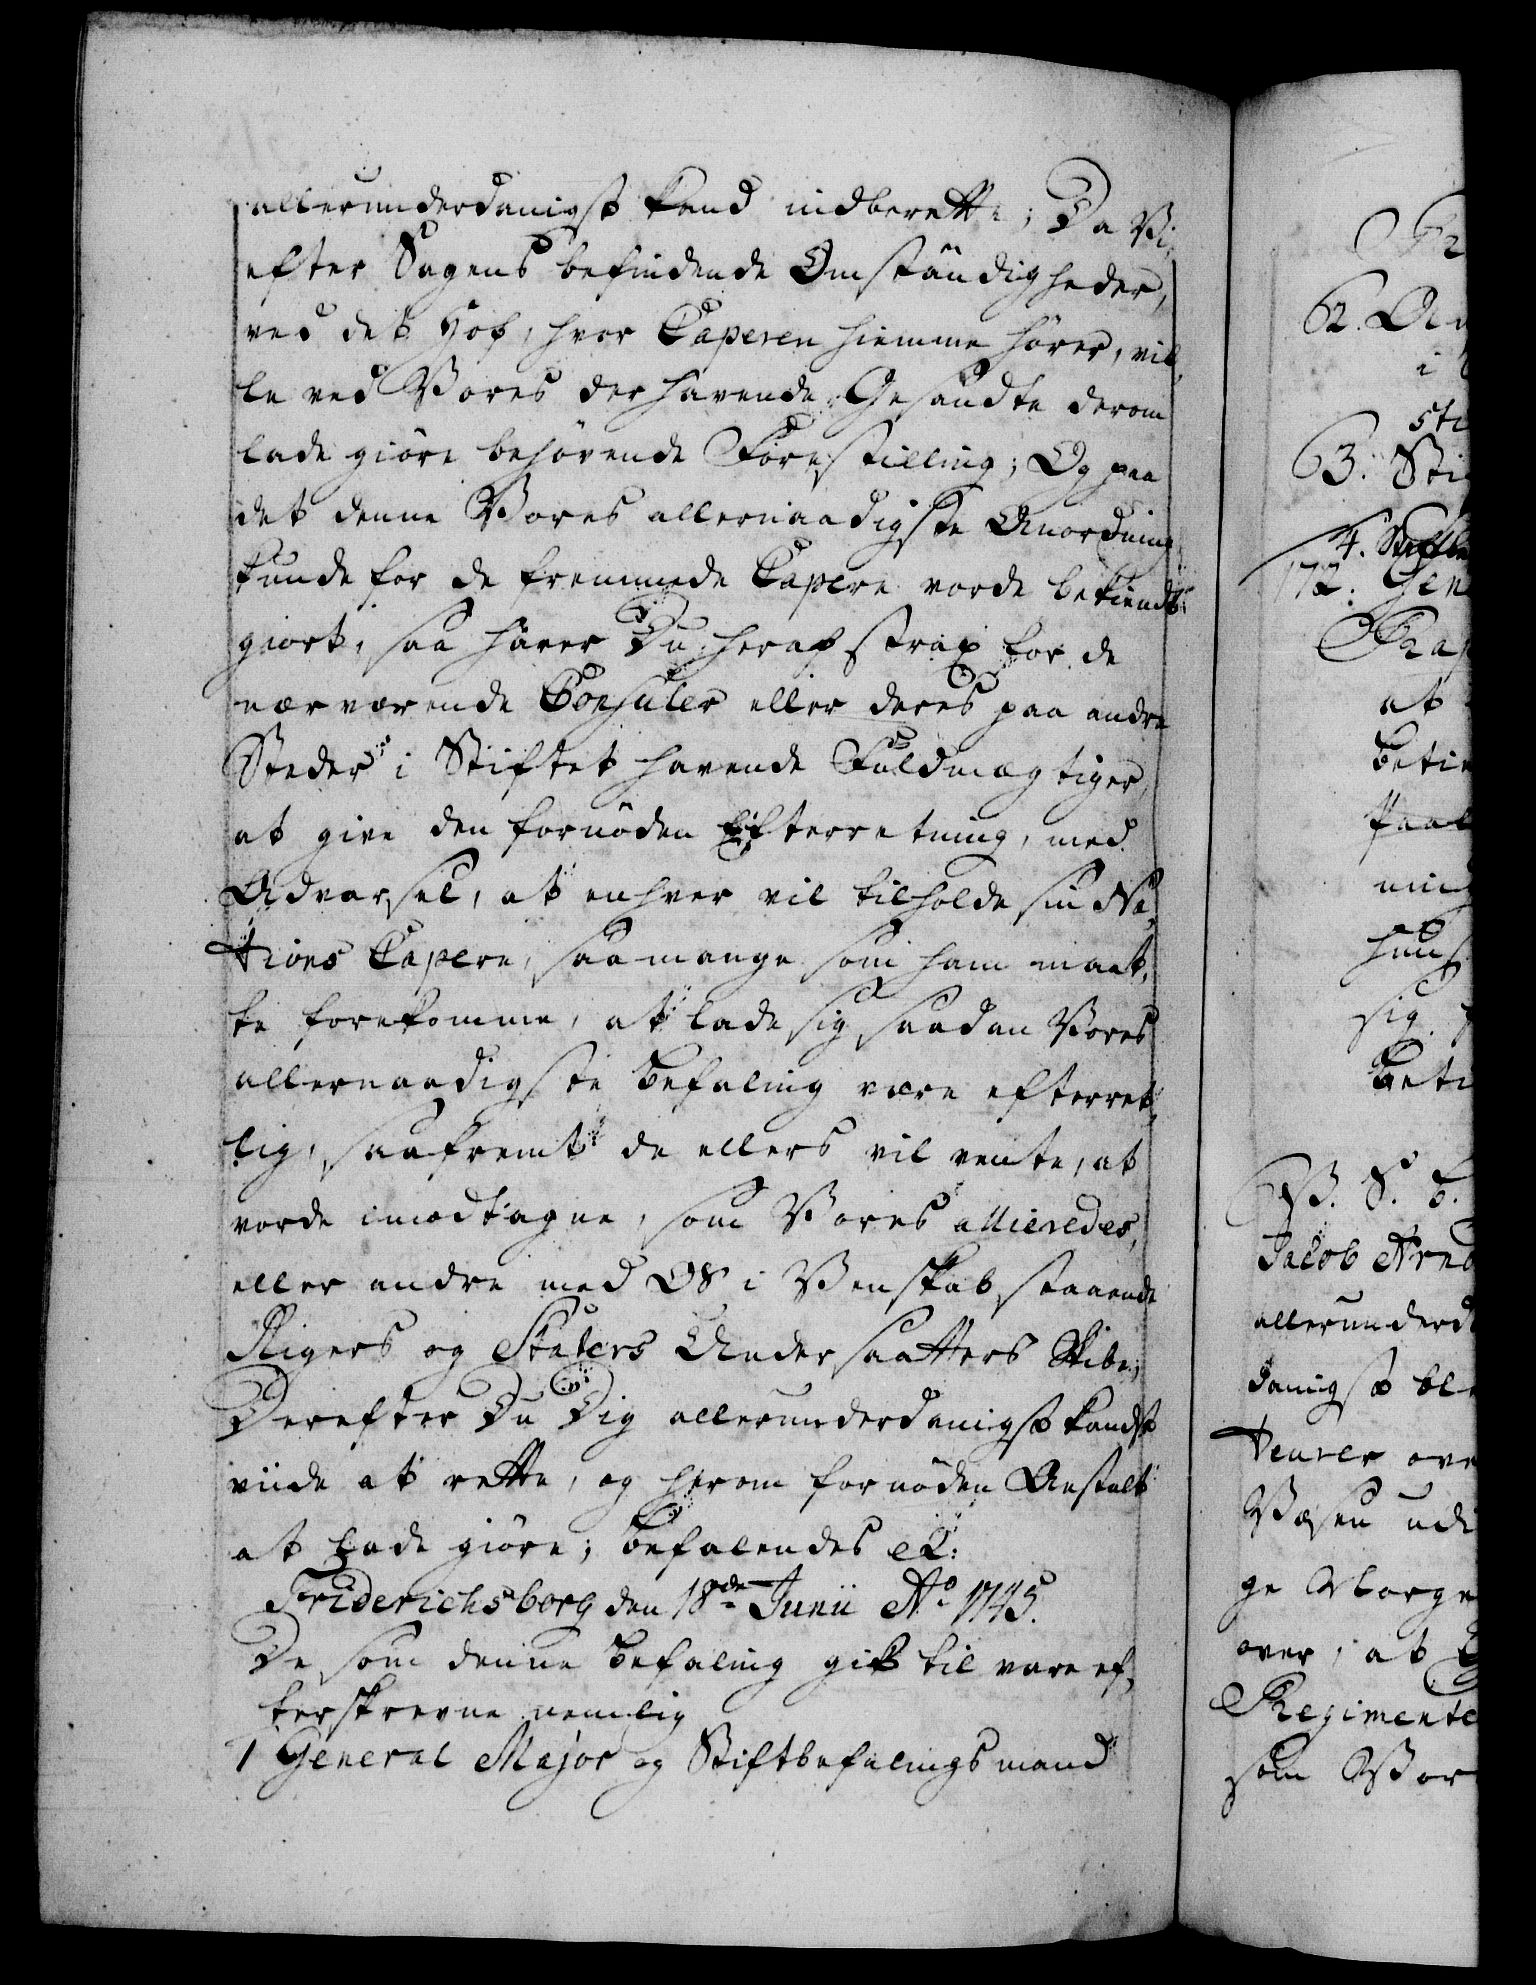 allerunderdanigst kand indberette; Da Vi
efter Sagens befindende Omständigheder,
ved det Hof, hvor Caperen hiemme hører, vil,
le ved Vores der havende Gesandte derom
lade giöre behövende Forestilling; Og paa
det denne Vores allernaadigste Anordning
kunde for de fremmede Capere vorde bekiendt,
giort, saa haver Du heraf strax for de
nærværende Consuler eller deres paa andre
Steder i Stiftet havende Fuldmægtiger,
at give den fornöden Efterretning, med
Advarsel, at enhver vil tilholde sin Na,
tions Capere, saa mange som ham maat,
te forekomme, at lade sig saadan Vores
allernaadigste Befaling være efterret,
lig, saafremt de ellers vil vente, at
vorde imodtagne, som Vores allieredes,
eller andre med OS i Venskab staaende
Rigers og Staters Undersaatters Skibe;
Derefter Du Dig allerunderdanigst kandst
viide at rette, og herom fornöden Anstalt
at lade giöre; Befalendes etc:
Friderichsborg den 18de Junii Ao 1745.
De som denne Befaling gik til vare ef,
terskrevne nemlig
1 General Major og Stiftbefalingsmand
62.
i
63. Sti
4.
172. Gen
at
sig
P. S. E.
Jacob Arno
allerunderd
danigst ble
teurer ove
Væsen udi
ge Norge
over, at
Regimente
som Vor